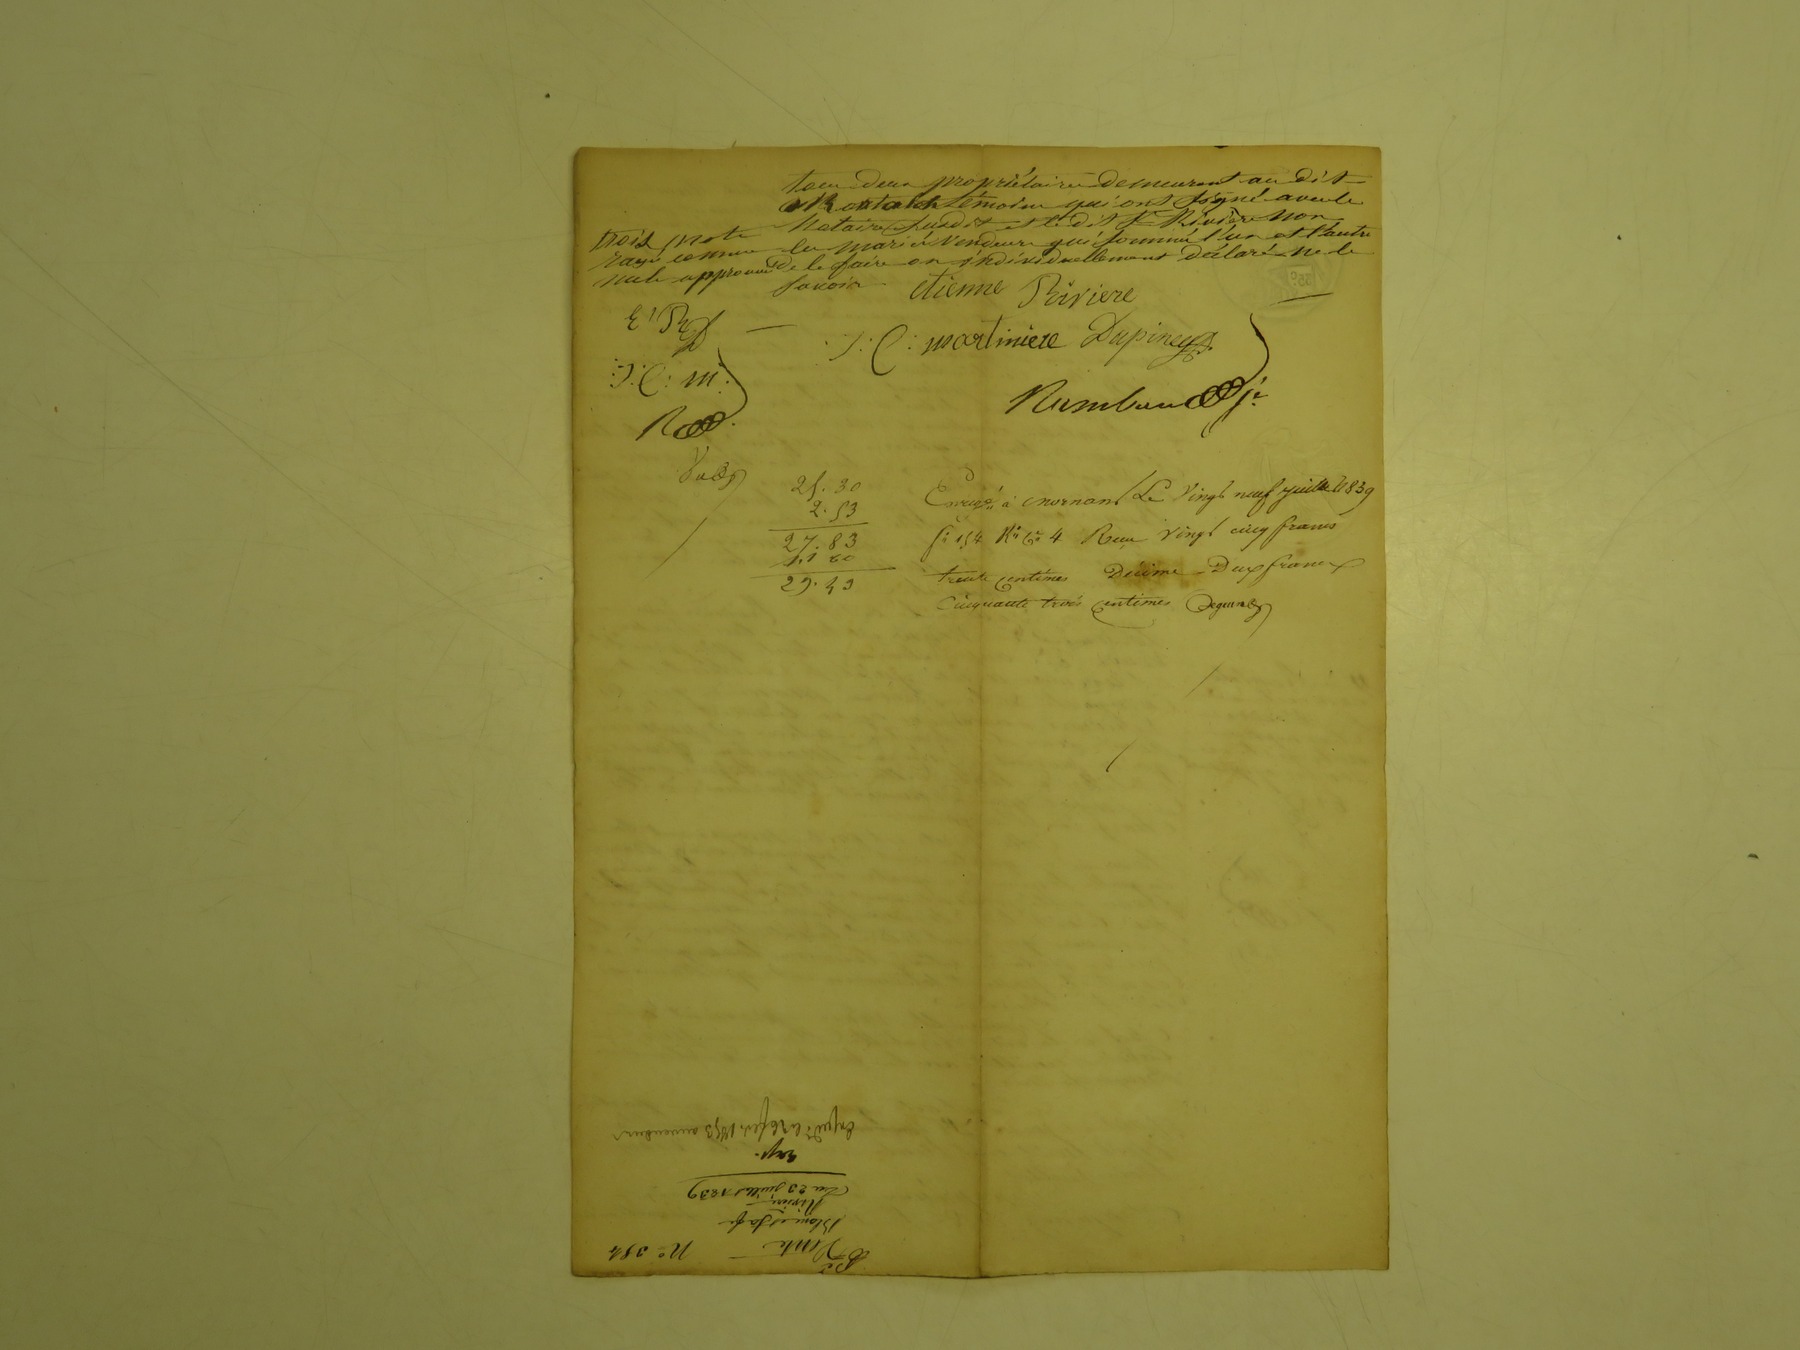 tous deux propriétaires demeurant au dit
témoins qui ont signé avec le
Notaire susdit et le dit Sr Rivière non
les mariés vendeurs qui sommés l'un et l'autre
de le faire on individuellement déclaré ne le
savoir
trois mots
rayé comme
nuls approuvé
etienne Riviere
E. R.
J: C: martiniere Dupiney
J: C: m:
Rambaud je
R
25.30
2.53
27.83
1.1 60
29.43
Enregé à mornant Le vingt neuf juillet 1839
fo 154 Ro Ce 4 Reçu vingt cinq francs
trente centimes Décime Deux francs
cinquante trois centimes
No 384
Vente
Rivière
Du 23 juillet 1839
Exp.